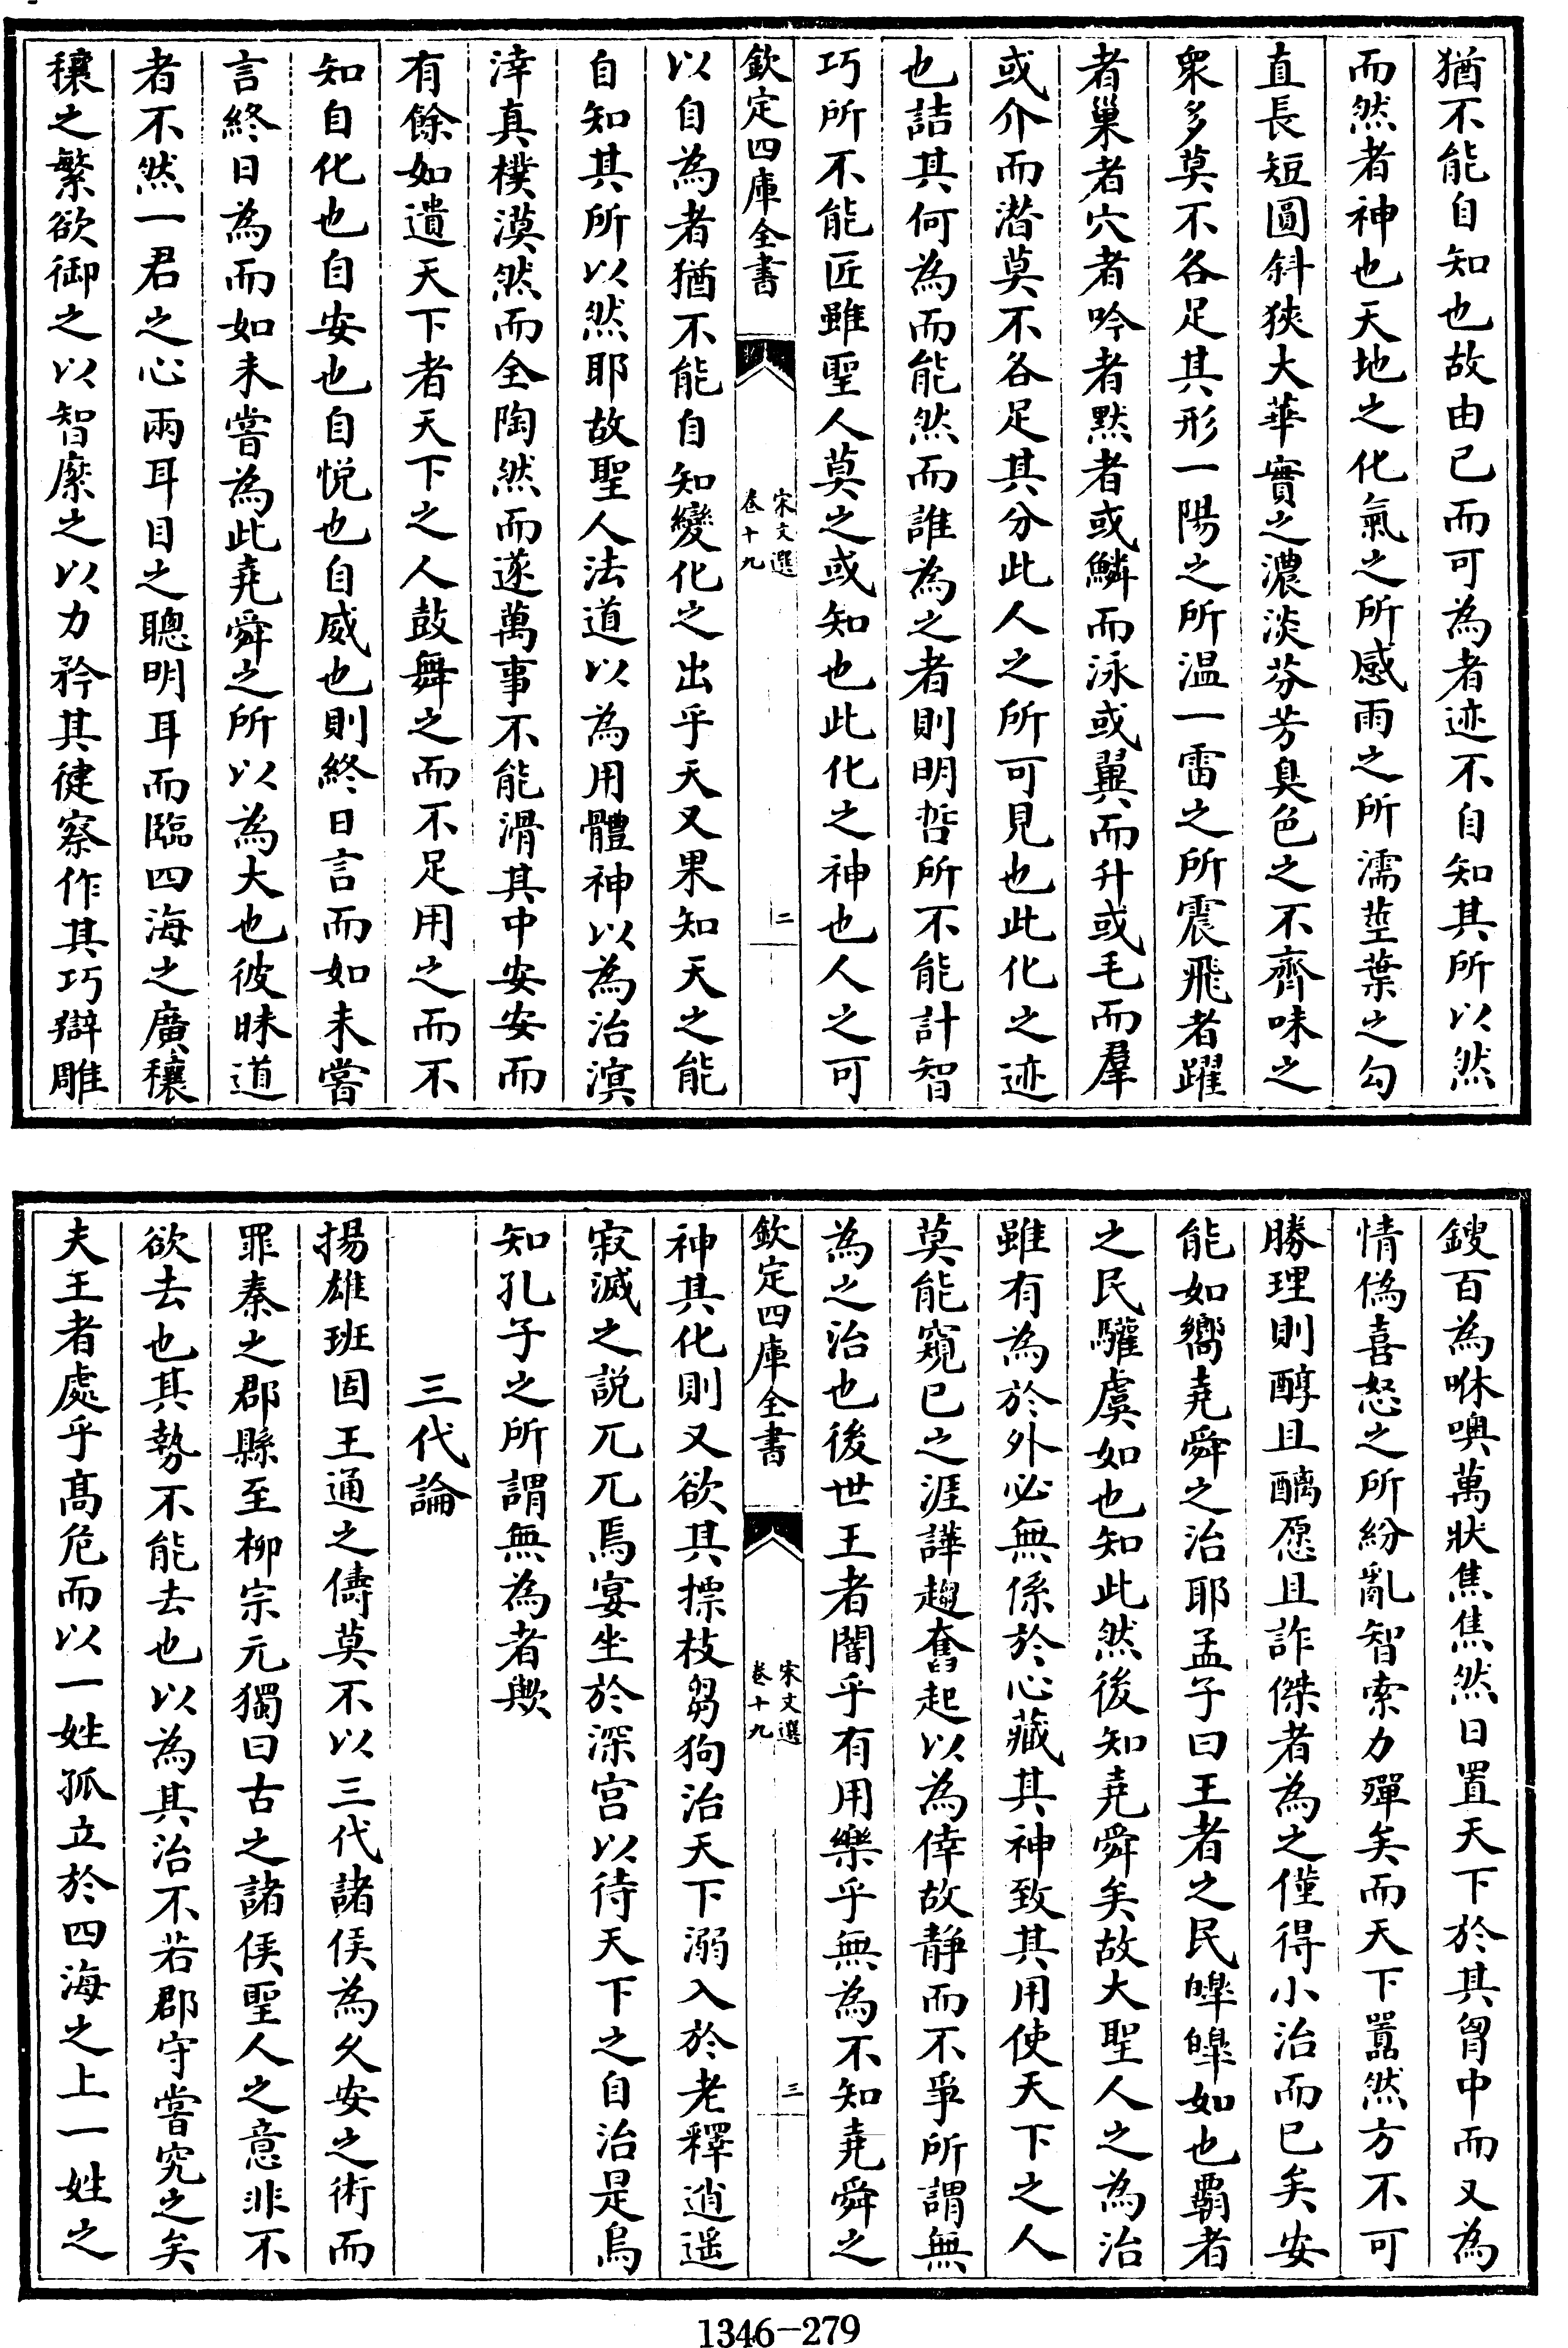 猶不能自知也故由已而可為者迹不自知其所以然
而然者神也天地之化氣之所感雨之所濡莖葉之勾
直長短圓斜狹大華實之濃淡芬芳臭色之不齊味之
衆多莫不各足其形一陽之所温一雷之所震飛者躍
者巢者穴者吟者默者或鱗而泳或翼而升或毛而羣
或介而潜莫不各足其分此人之所可見也此化之迹
也詰其何為而能然而誰為之者則明哲所不能計智
巧所不能匠雖聖人莫之或知也此化之神也人之可
欽定四庫全書
宋文選
卷十九
二
以自為者猶不能自知變化之出乎天又果知天之能
自知其所以然耶故聖人法道以為用體神以為治溟
涬真樸漠然而全陶然而遂萬事不能滑其中安安而
有餘如遺天下者天下之人鼓舞之而不足用之而不
知自化也自安也自悦也自威也則終日言而如未嘗
言終日為而如未嘗為此堯舜之所以為大也彼昧道
者不然一君之心兩耳目之聰明耳而臨四海之廣穰
穰之繁欲御之以智縻之以力矜其徤察作其巧辯雕
鎪百為咻噢萬狀焦焦然日置天下於其胷中而又為
情偽喜怒之所紛亂智索力殫矣而天下囂然方不可
勝理則醇且醨愿且詐傑者為之僅得小治而已矣安
能如嚮堯舜之治耶孟子曰王者之民皥皥如也霸者
之民驩虞如也知此然後知堯舜矣故大聖人之為治
雖有為於外必無係於心藏其神致其用使天下之人
莫能窺已之涯譁趨奮起以為倖故静而不爭所謂無
為之治也後世王者闇乎有用樂乎無為不知堯舜之
欽定四庫全書
宋文選
卷十九
三
神其化則又欲其摽枝芻狗治天下溺入於老釋逍遥
寂滅之説兀兀焉宴坐於深宫以待天下之自治是烏
知孔子之所謂無為者歟
三代論
揚雄班固王通之儔莫不以三代諸侯為久安之術而
罪秦之郡縣至柳宗元獨曰古之諸侯聖人之意非不
欲去也其勢不能去也以為其治不若郡守嘗究之矣
夫王者處乎髙危而以一姓孤立於四海之上一姓之
1346-279